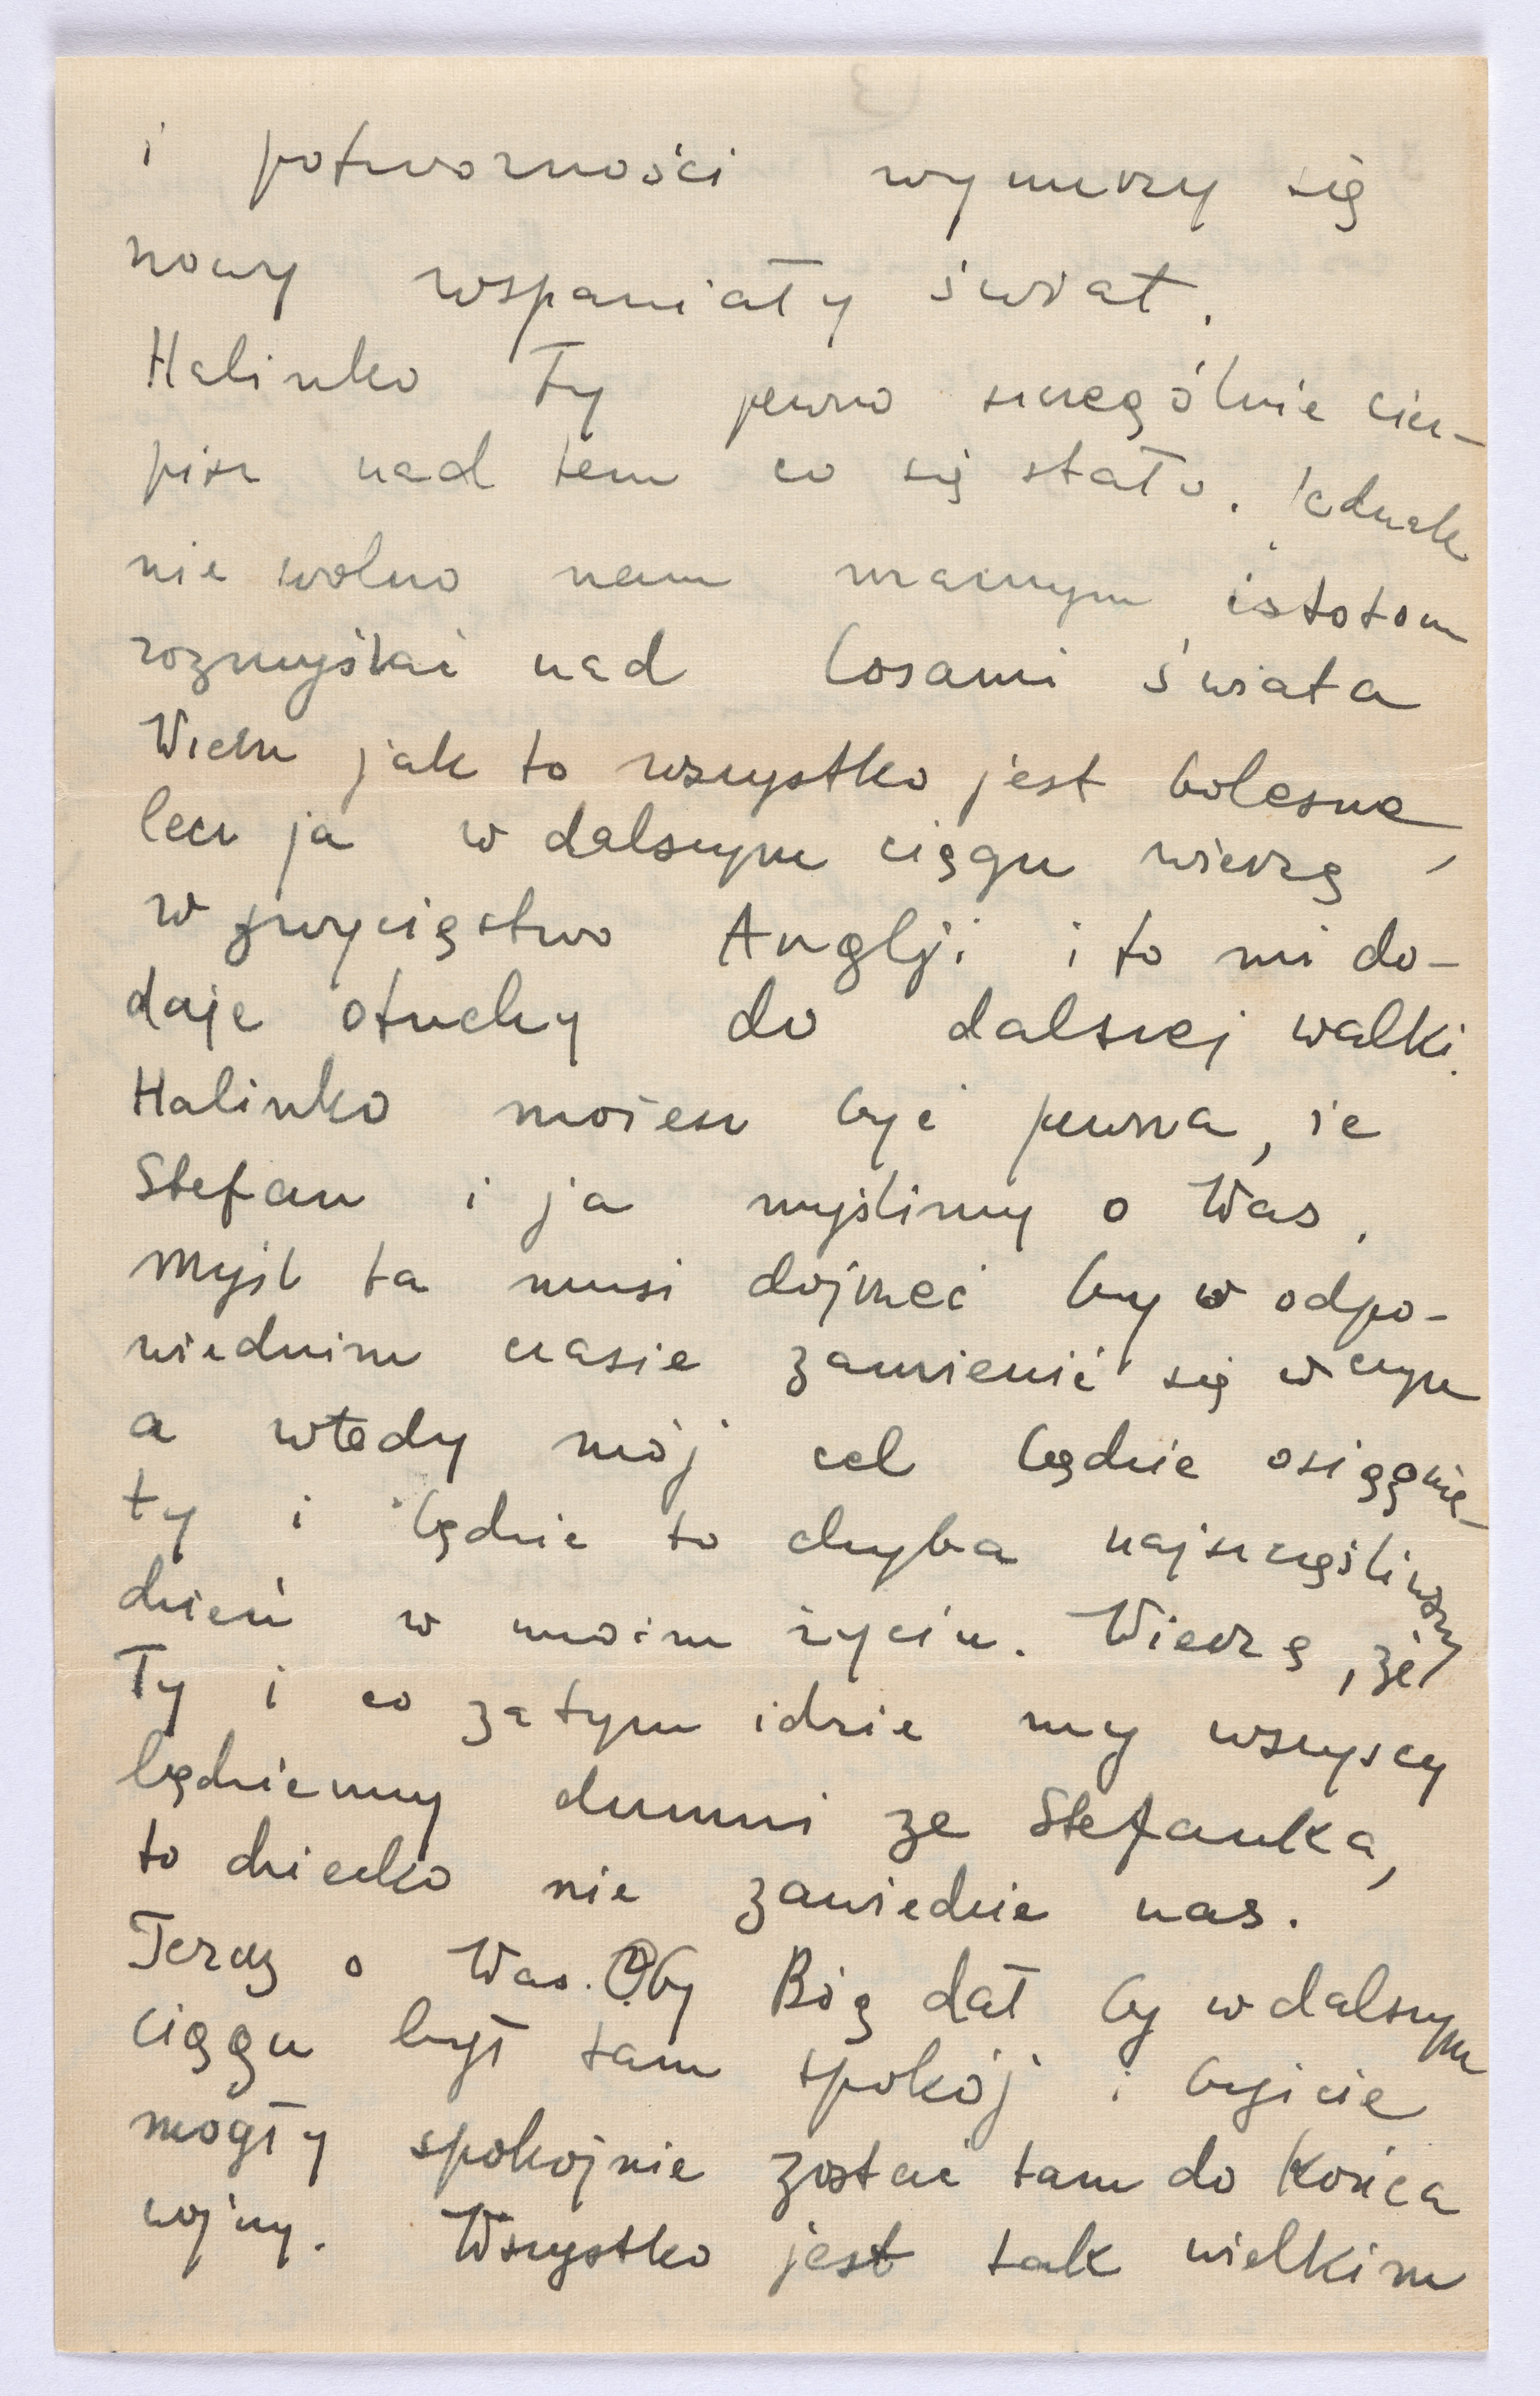 i potworności wynurzy się
nowy wspaniały świat.
Halinko Ty pewno szczególnie cier-
pisz nad tem co się stało. Jednak
nie wolno nam marnym istotom
rozmyślać nad losami świata
Wiem jak to wszystko jest bolesne,
lecz ja w dalszym ciągu wierzę
w zwycięstwo Anglji i to mi do-
daje otuchy do dalszej walki.
Halinko możesz być pewna, że
Stefan i ja myślimy o Was.
Myśl ta musi dojrzeć by w odpo-
wiednim czasie zamienić się w czyn
a wtedy mój cel będzie osiągnię-
ty i będzie to chyba najszczęśliwszy
dzień w moim życiu. Wierzę, że
Ty i co za tym idzie my wszyscy
będziemy dumni ze Stefanka,
to dziecko nie zawiedzie nas.
Teraz o Was. Oby Bóg dał by w dalszym
ciągu był tam spokój i byście
mogły spokojnie zostać tam do końca
wojny. Wszystko jest tak wielkim